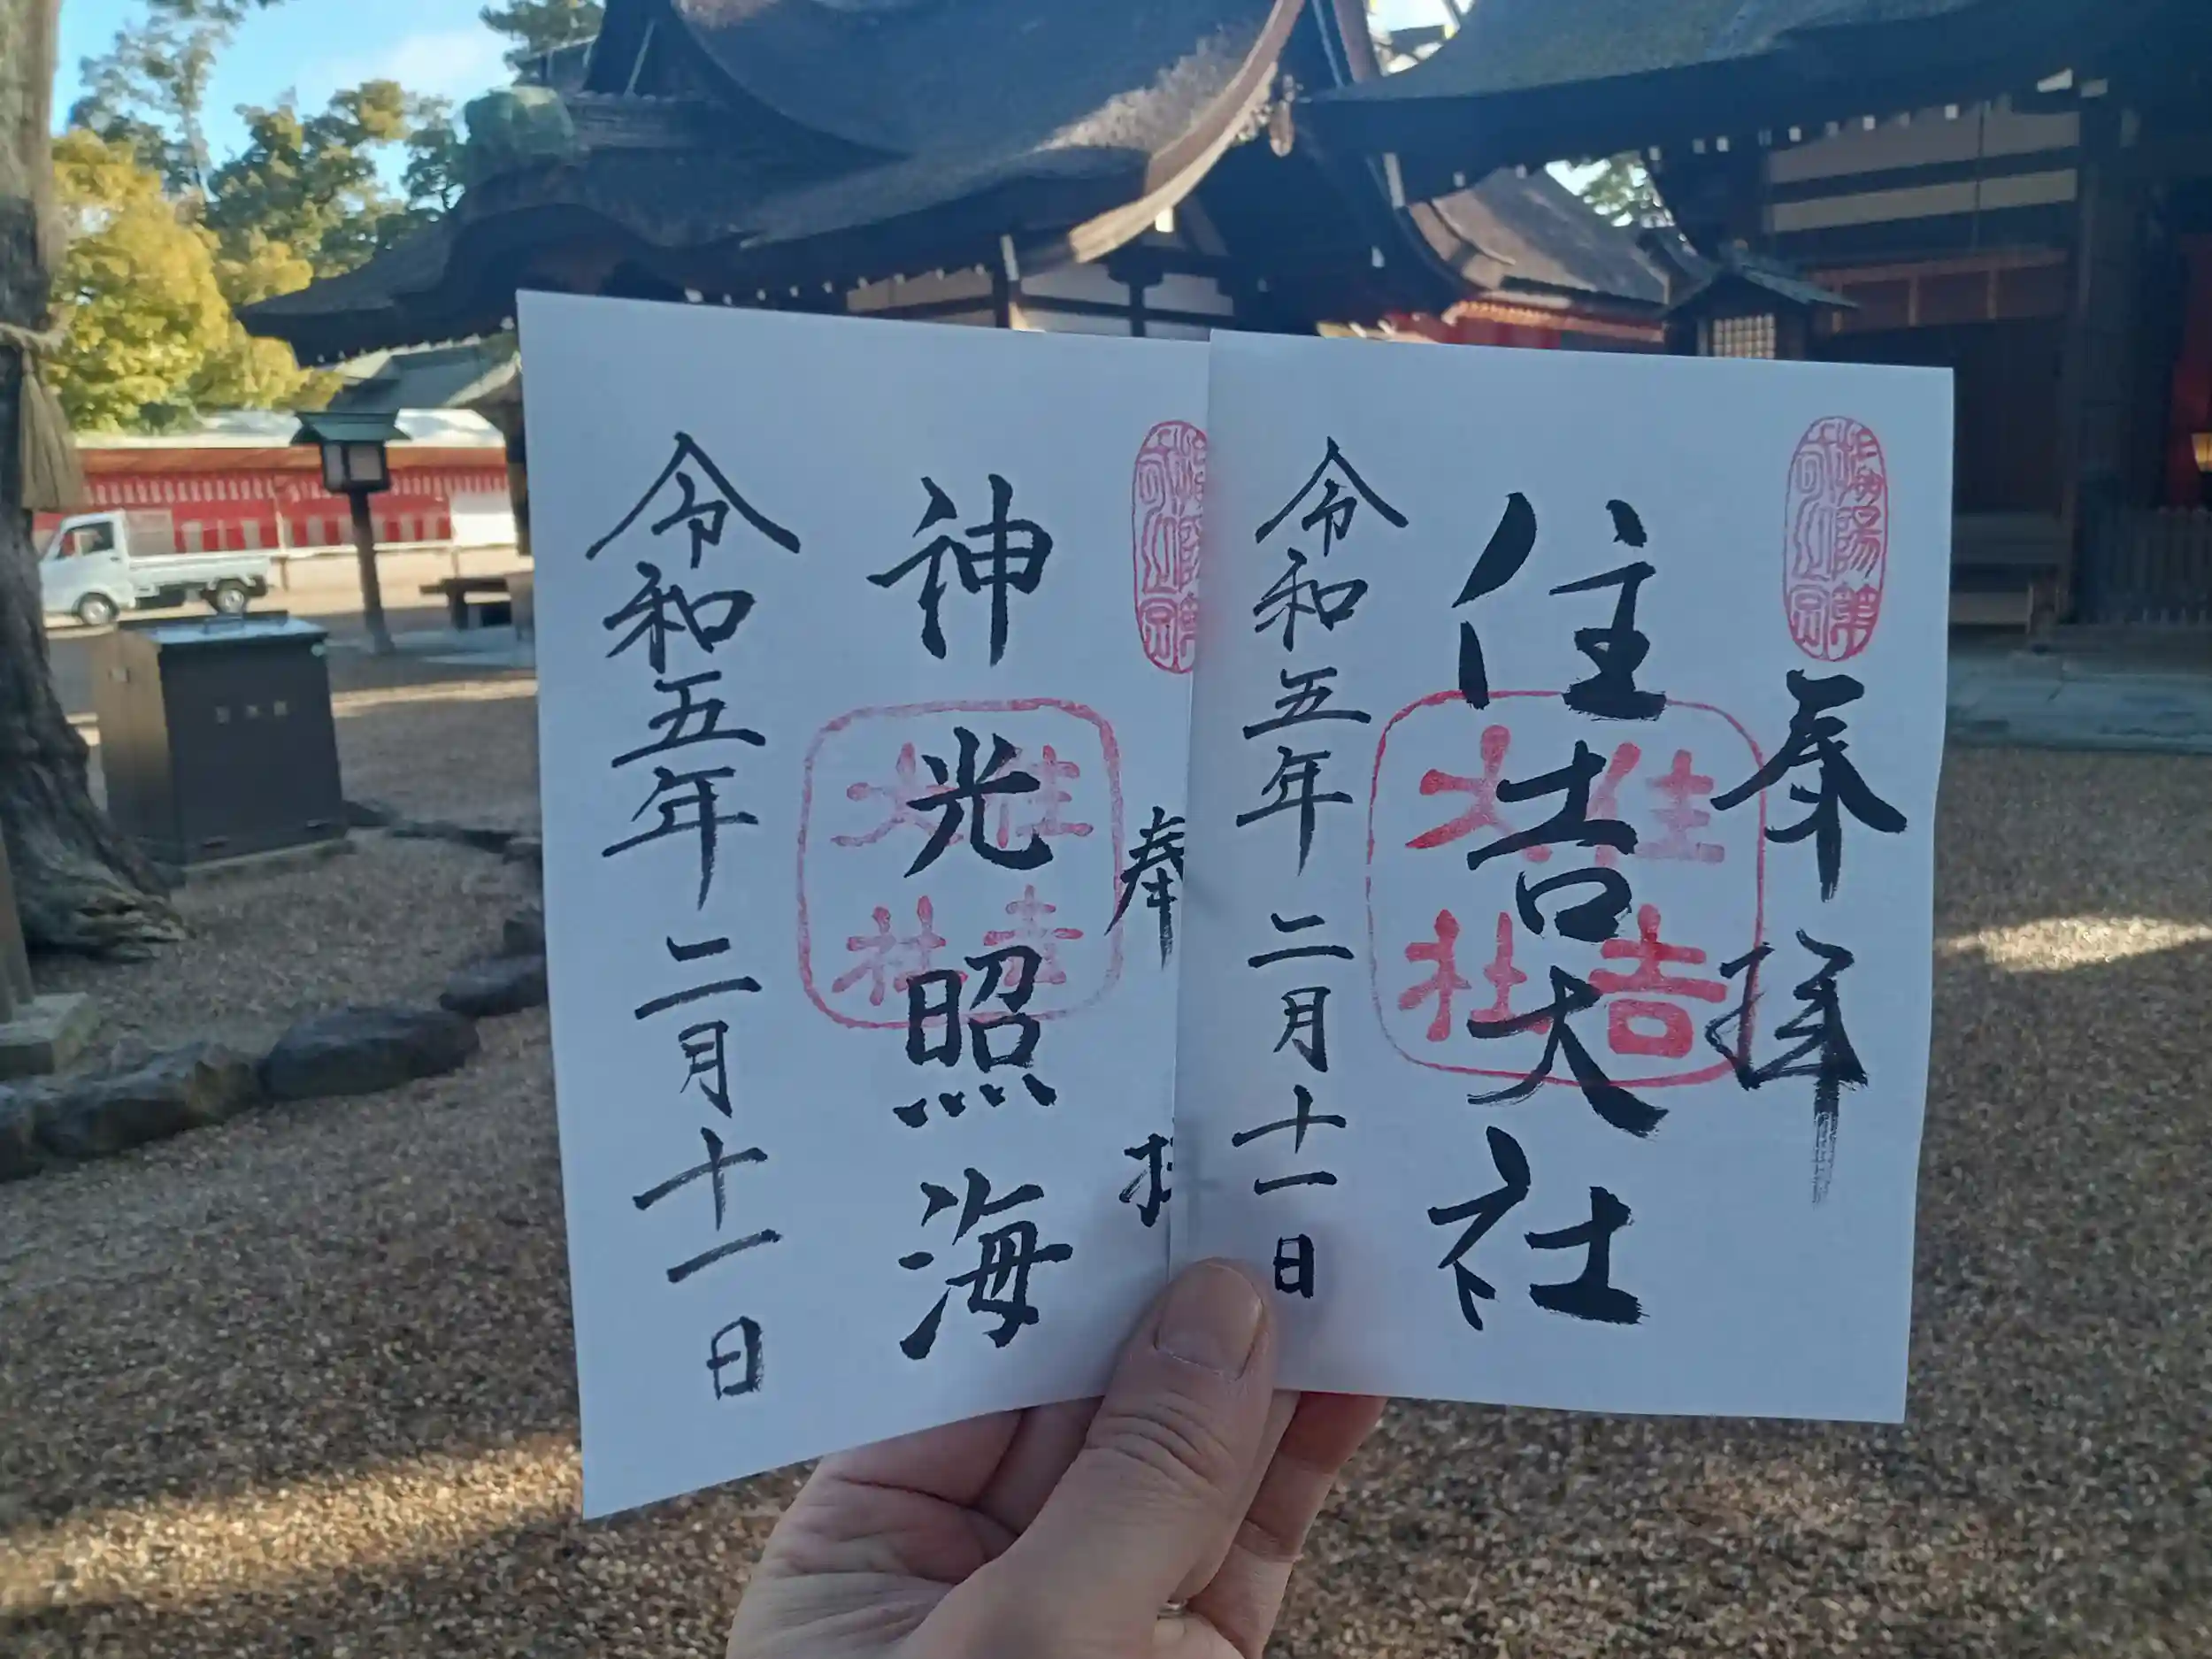 奉拝
住吉大社
令和五年二月十一日
住吉大社
奉拝
神光照海
令和五年二月十一日
住吉大社